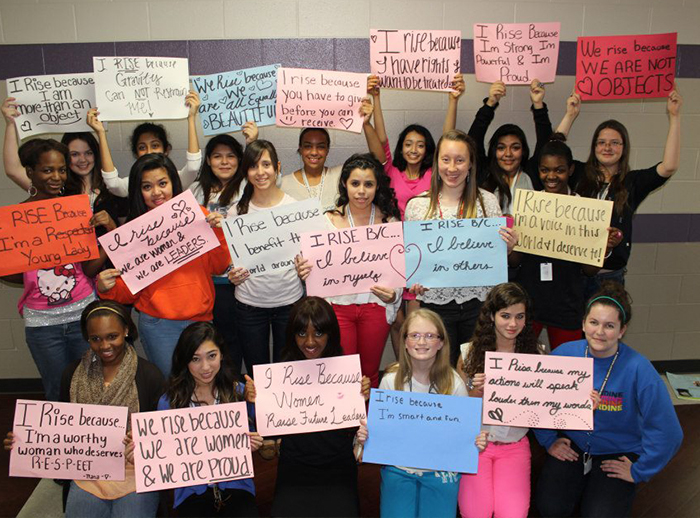 I Rise because
I am
more than
an object
I RISE because
Gravity
Can NOT Restrain
me!
We Rise because
We
are All Equally
BEAUTIFUL
I Rise because
You have to give
before you can
receive
I rise because
I have rights
want to be treated
I Rise Because
I'm Strong I'm
Powerful & I'm
Proud
We rise because
WE ARE NOT
OBJECTS
I RISE Because
I'm a Respected
Young Lady
I rise
because we are
women &
we are LEADERS
I Rise Because
I benefit the
world around
I RISE B/C
I believe
in myself
I RISE B/C
I believe
in others
I Rise because
I'm a voice in this
World & I deserve to!
I Rise because...
I'm a worthy
woman who deserves
R-E-S-P-E-C-T
We rise because
we are WOMEN
& we are PROUD
I Rise Because
Women
Raise Future Leaders
I rise because
I'm smart and fun
I Rise because
my
actions will speak
louder than my words